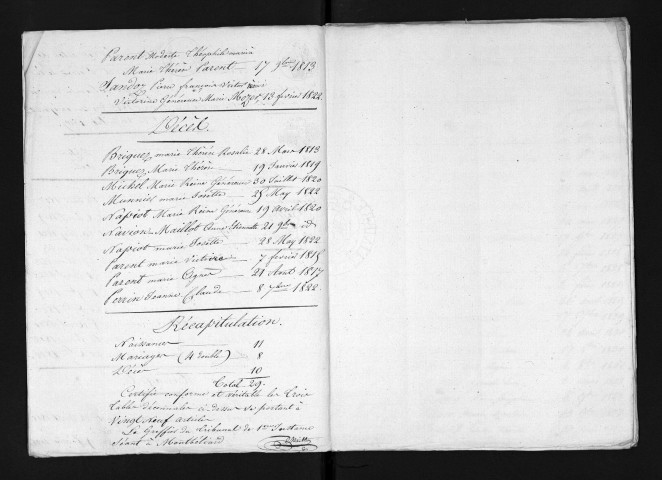 Parent Modeste Théophile marié à
Marie Thérèse Parent — 17 9bre 1813
Sandoz Pierre françois Victor avec
Victorine Généreux Marie 13 fevrier 1822
Décès.
Briquez marie Thérèse Rosalie 28 Mars 1813
Briquez Marie Thérèse — 19 Janvier 1819
Michel Marie Reine Généreux 30 Juillet 1820
Munnier marie Josette — 25 May 1822
Napiot Marie Reine Généreux 19 Avril 1820
Navion Maillot Anne Etiennette 21 9bre id
Napiot marie Josette — 28 May 1822
Parent marie Victoire — 7 fevrier 1815
Parent marie Agnès — 21 Aout 1817
Perrin Jeanne Claude — 8 7bre 1822
Récapitulation.
Naissances — 11
Mariages (4 double) — 8
Décès — 10
Total 29.
Certifié conforme et véritable les trois
tables décennales ci-dessus se portant à
Vingt neuf articles
Le Greffier du tribunal de 1re Instance
séant à Montbéliard